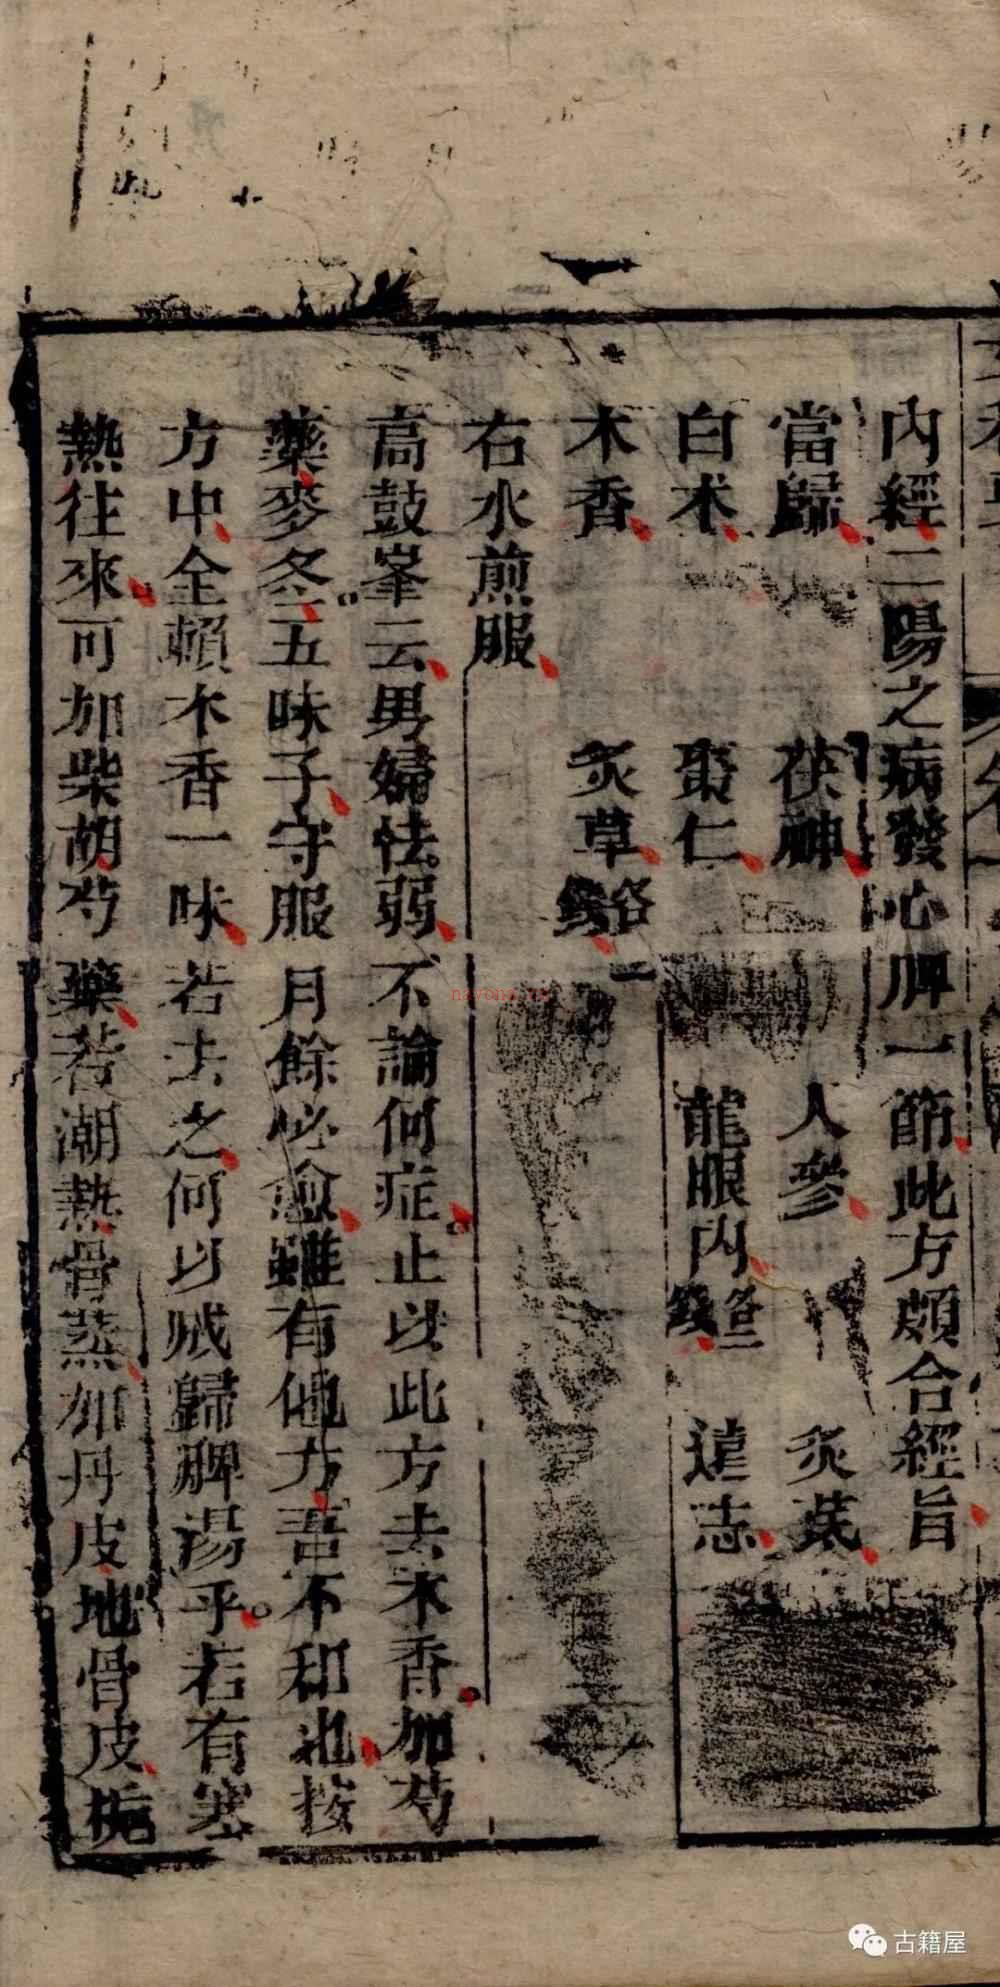 內經二陽之病發心脾一節此方頗合經旨
當歸 茯神 人參 炙芪
白朮 棗仁 龍眼肉各二錢 遠志
木香 炙草各一錢
右水煎服
高鼓峯云男婦怯弱不論何症止以此方去木香加芍
藥麥冬五味子守服月餘必愈雖有他方吾不和也按
方中全賴木香一味若去之何以成歸脾湯乎若有寒
熱往來可加柴胡芍藥若潮熱骨蒸加丹皮地骨皮梔
古籍屋